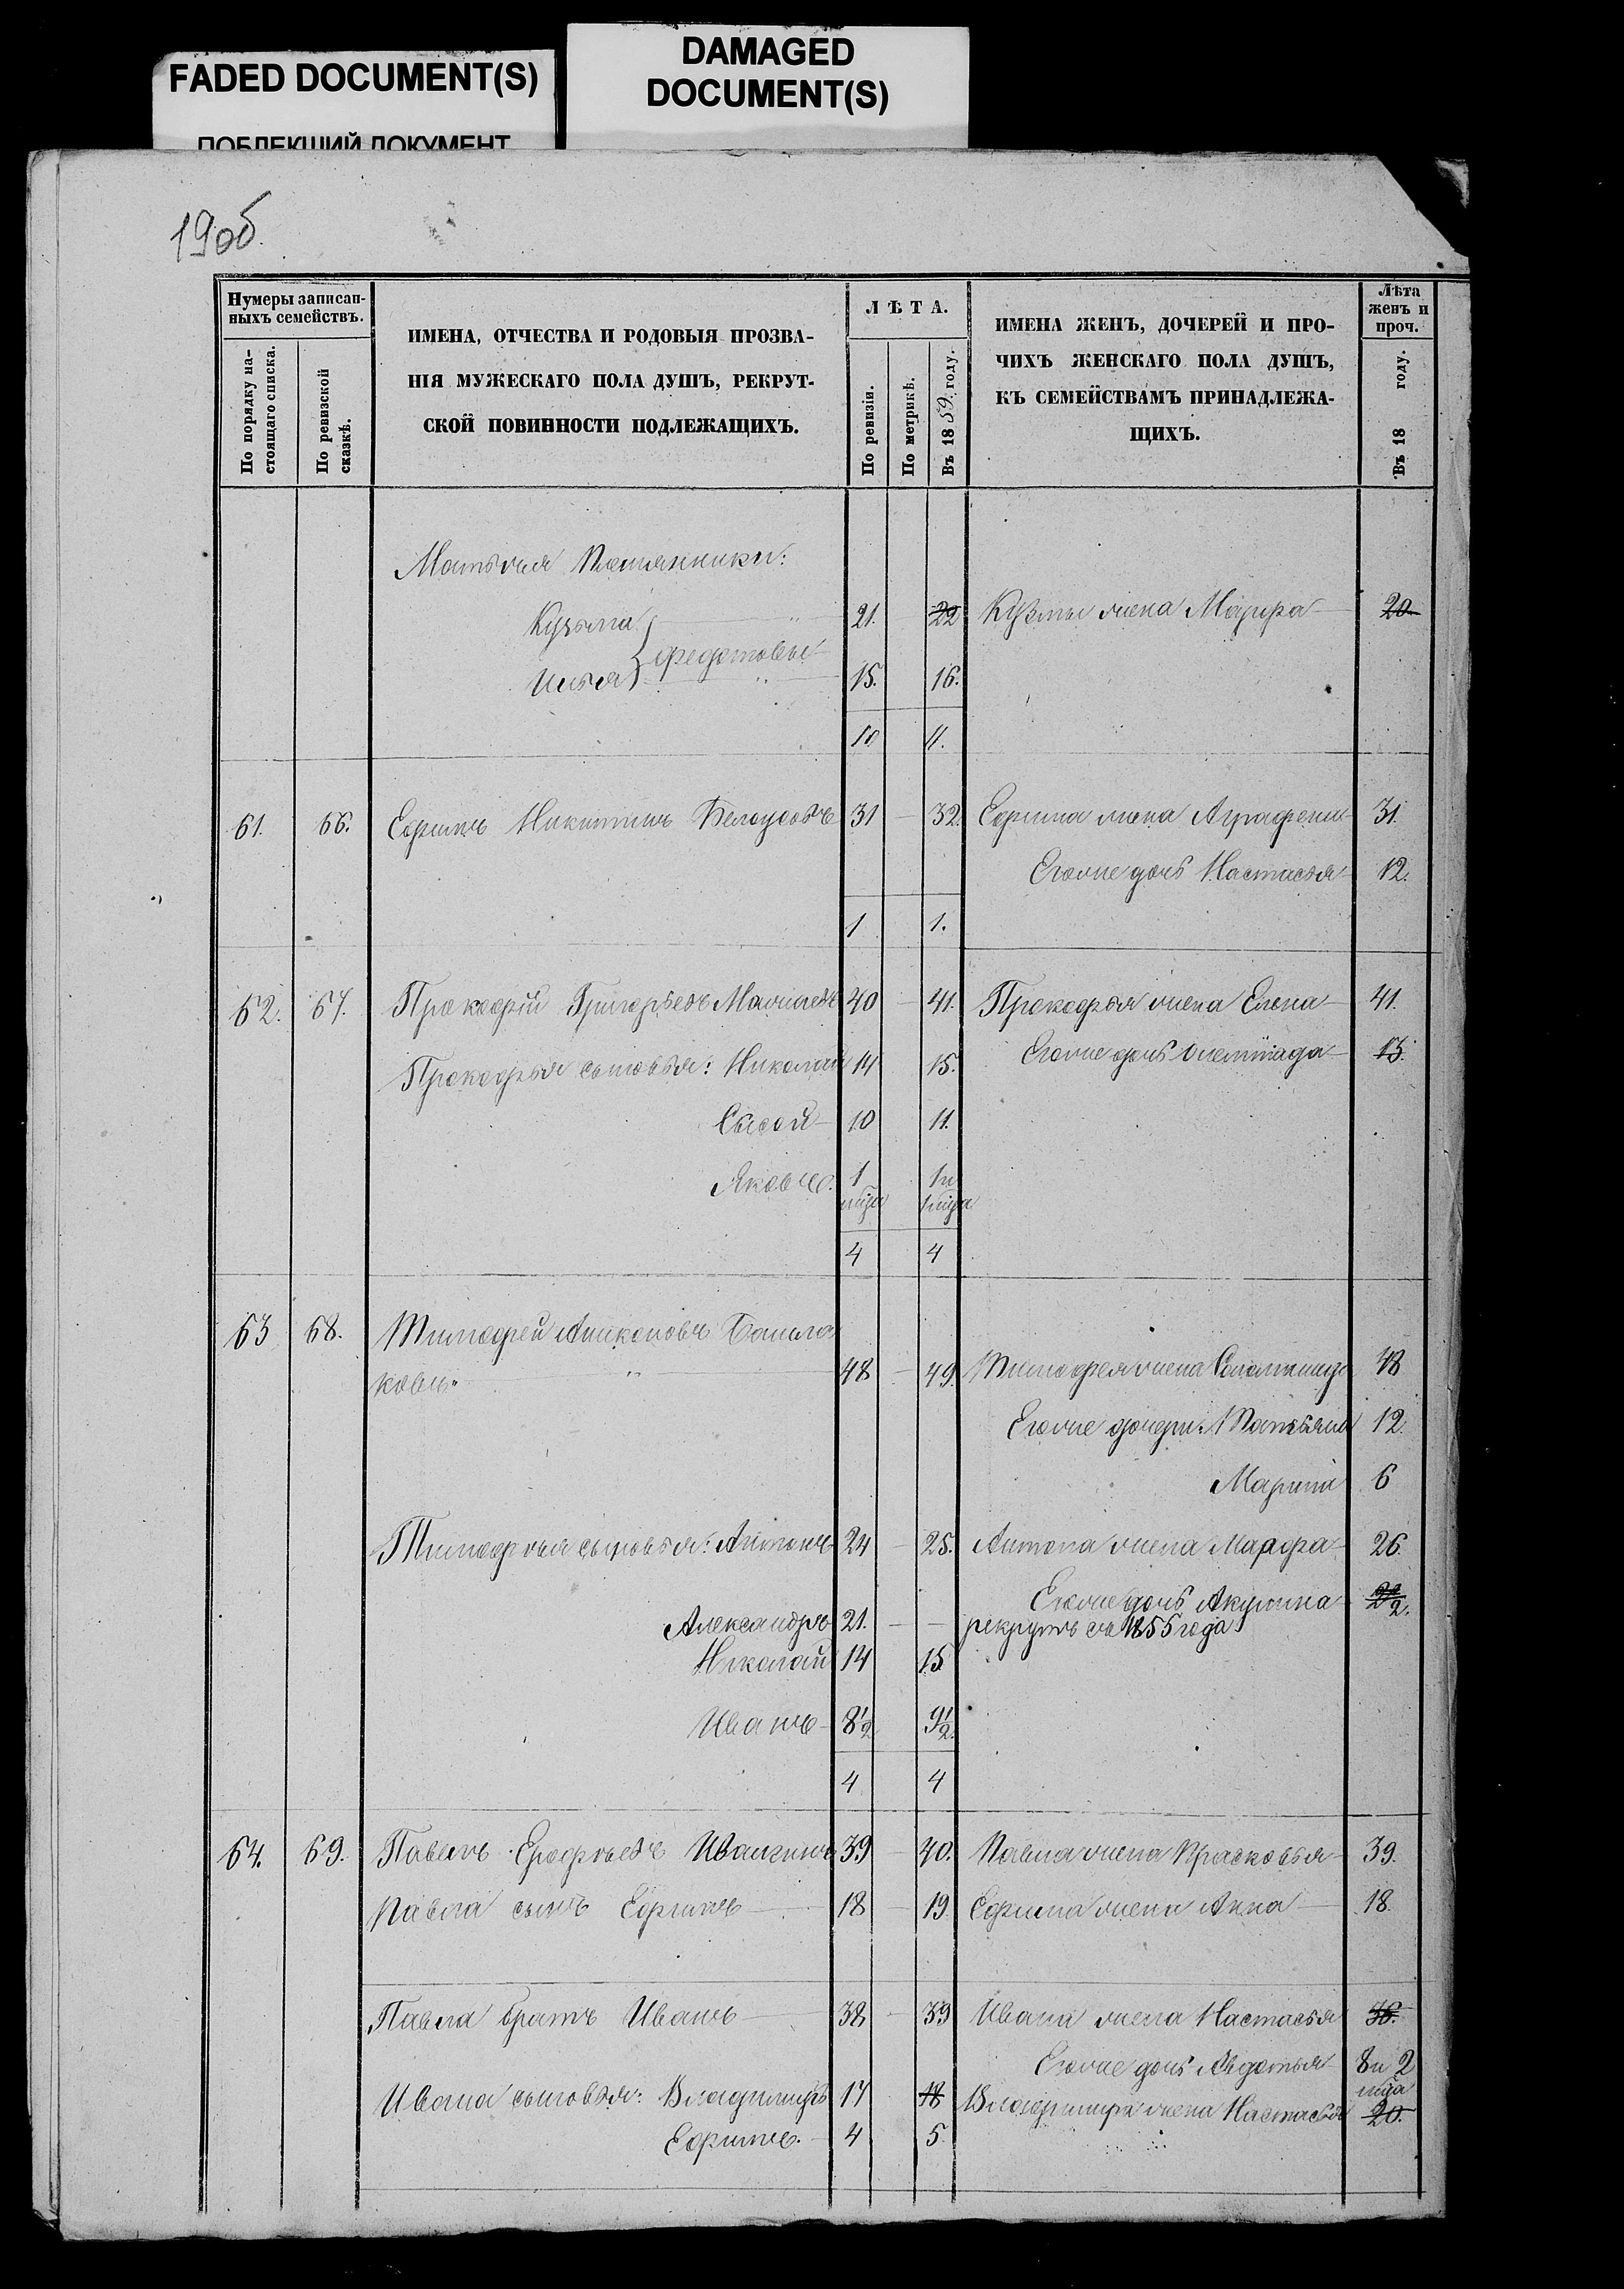 FADED DOCUMENT(S)
ПОБЛЕКШИЙ ДОКУМЕНТ
DAMAGED
DOCUMENT(S)
19об.
Нумеры записан-
ныхъ семействъ.
По порядку на-
стоящаго списка.
По ревизской
сказкѣ.
ИМЕНА, ОТЧЕСТВА И РОДОВЫЯ ПРОЗВА-
НІЯ МУЖЕСКАГО ПОЛА ДУШЪ, РЕКРУТ-
СКОЙ ПОВИННОСТИ ПОДЛЕЖАЩИХЪ.
ЛѢТА.
По ревизіи.
По метрикѣ.
Въ 1859. году.
ИМЕНА ЖЕНЪ, ДОЧЕРЕЙ И ПРО-
ЧИХЪ ЖЕНСКАГО ПОЛА ДУШЪ,
КЪ СЕМЕЙСТВАМЪ ПРИНАДЛЕЖА-
ЩИХЪ.
Лѣта
женъ и
проч.
Въ 18 году.
племянники:
Кузьма 21. 22 Кузмы жена Мавра 20
Федотовы
Илья 15. 16.
10 11.
61. 66. Ефимъ Никитинъ Белоусовъ 31 32. Ефима жена Аграфена 31.
Егоже дочь Настасья 12.
1 1.
62. 67. Прокофій Григорьевъ 40 41. Прокофья жена Елена 41.
Прокофья сыновья: Николай 14 15. Егоже дочь Олимпіада 13.
Сысой 10 11.
Яковъ. 1 1 и
мца 1 мца
4 4
63 68. Тимофей
ковъ 48 49. Тимофея жена Соломонида 48
Егоже дочери: Татьяна 12.
Марина 6
Тимофея сыновья: Антонъ 24 25. Антона жена Марфа 26.
Егоже дочь Акулина 2.
Александръ 21. рекрутъ съ 1855 года
Николай 14 15
Иванъ 8½ 9½.
4 4
64. 69. Павелъ Ерофѣевъ 39 40. Павла жена Прасковья 39.
Павла сынъ Ефимъ 18 19 Ефима жена Анна 18.
Павла братъ Иванъ 38 39 Ивана жена Настасья 36.
Егоже дочь Авдотья 8 и 2
мца
Ивана сыновья: Владимиръ 17 18 Владимира жена Настасья 20.
Ефимъ. 4 5.